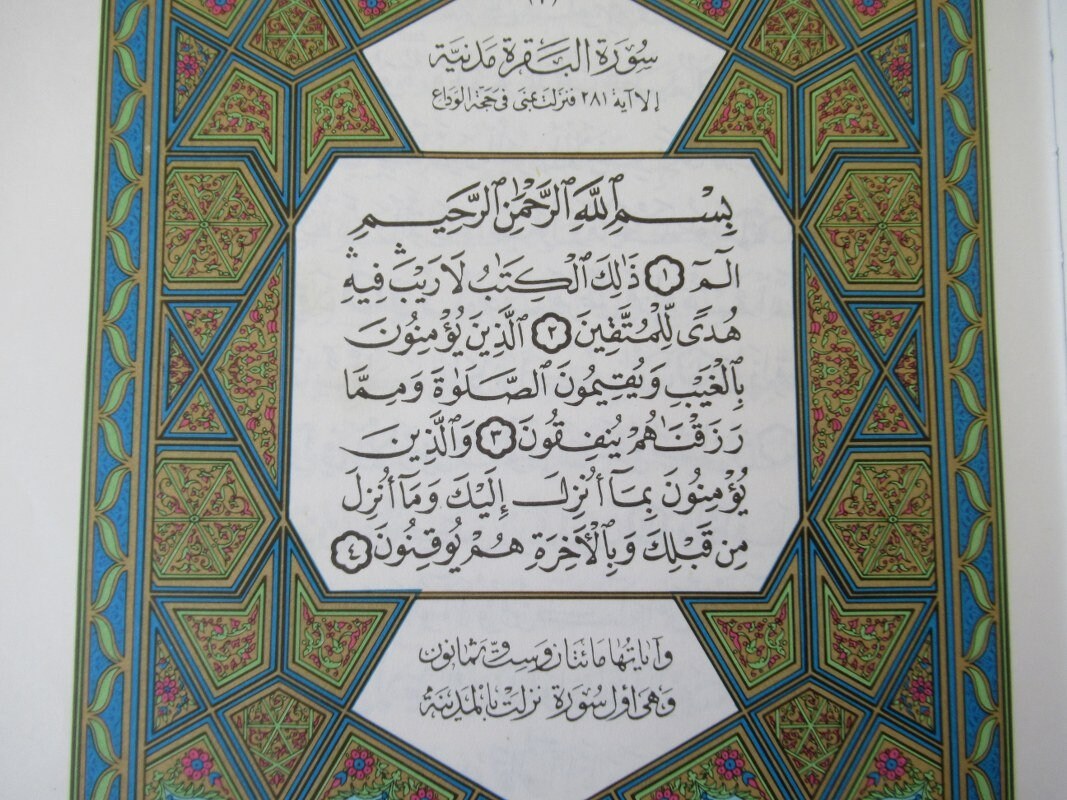 (٢)
سُورَة البَقَرة مَدَنيَّة
إلا آية ٢٨١ فنزلت بمنى في حجة الوداع
بِسْمِ ٱللَّهِ ٱلرَّحْمَٰنِ ٱلرَّحِيمِ
الٓمٓ ١ ذَٰلِكَ ٱلْكِتَٰبُ لَا رَيْبَ فِيهِ
هُدًى لِّلْمُتَّقِينَ ٢ ٱلَّذِينَ يُؤْمِنُونَ
بِٱلْغَيْبِ وَيُقِيمُونَ ٱلصَّلَوٰةَ وَمِمَّا
رَزَقْنَٰهُمْ يُنفِقُونَ ٣ وَٱلَّذِينَ
يُؤْمِنُونَ بِمَآ أُنزِلَ إِلَيْكَ وَمَآ أُنزِلَ
مِن قَبْلِكَ وَبِٱلْأَخِرَةِ هُمْ يُوقِنُونَ ٤
وَآياتُها مائتان وَسِتٌّ وَثمانون
وَهي أول سُورَة نزلت بالمدينة